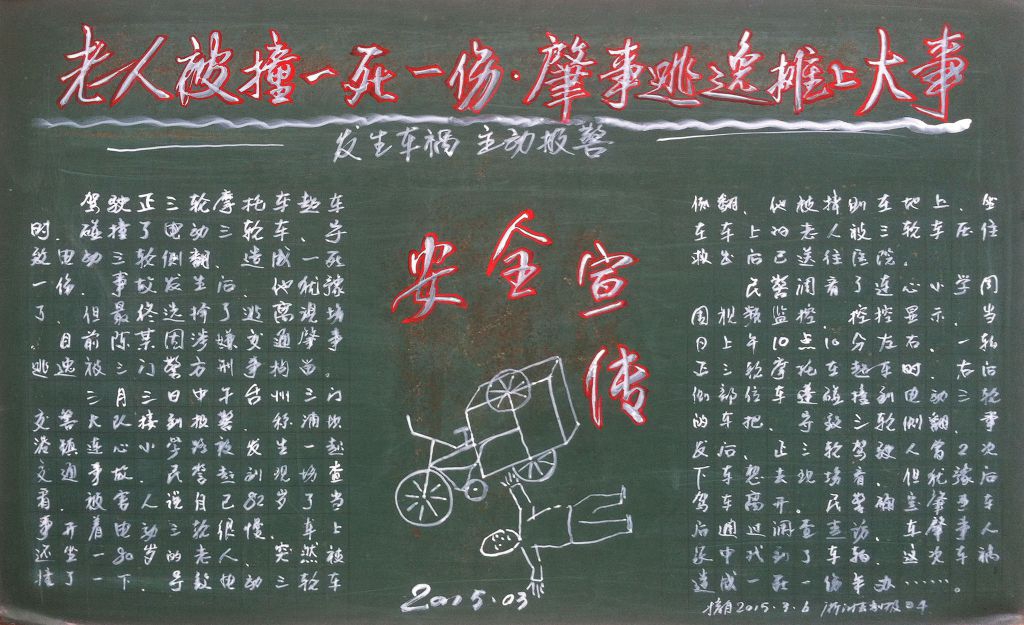 老人被撞一死一伤·肇事逃逸摊上大事
发生车祸 主动报警
驾驶正三轮摩托车超车
时,碰撞了电动三轮车、导
致电动三轮侧翻、造成一死
一伤、事故发生后、他犹豫
了、但最终选择了逃离现场
、目前陈某因涉嫌交通肇事
逃逸被三门警方刑事拘留。
三月三日中午台州三门
交警大队接到报警、称浦坝
港镇连心小学路段发生一起
交通事故、民警赶到现场查
看、被害人说自己82岁了当
事开着电动三轮很慢、车上
还坐一80岁的老人、突然被
撞了一下、导致电动三轮车
安全宣传
2015.03
侧翻、他被摔倒在地上、坐
在车上的老人被三轮车压住
救出后已送往医院。
民警调看了连心小学周
围视频监控、控控显示、当
日上午10点10分左右、一辆
正三轮摩托车超车时、右后
侧部位车逢碰撞到电动三轮
的车把、导致三轮侧翻、事
发后、正三轮驾驶人曾2次
下车想去现场看、但犹豫后
驾车离开。民警确定肇事车
后通过调查走访、在肇事人
家中找到了车辆、这次车祸
造成一死一伤事办……。
摘自2015.3.6 浙江法制报04